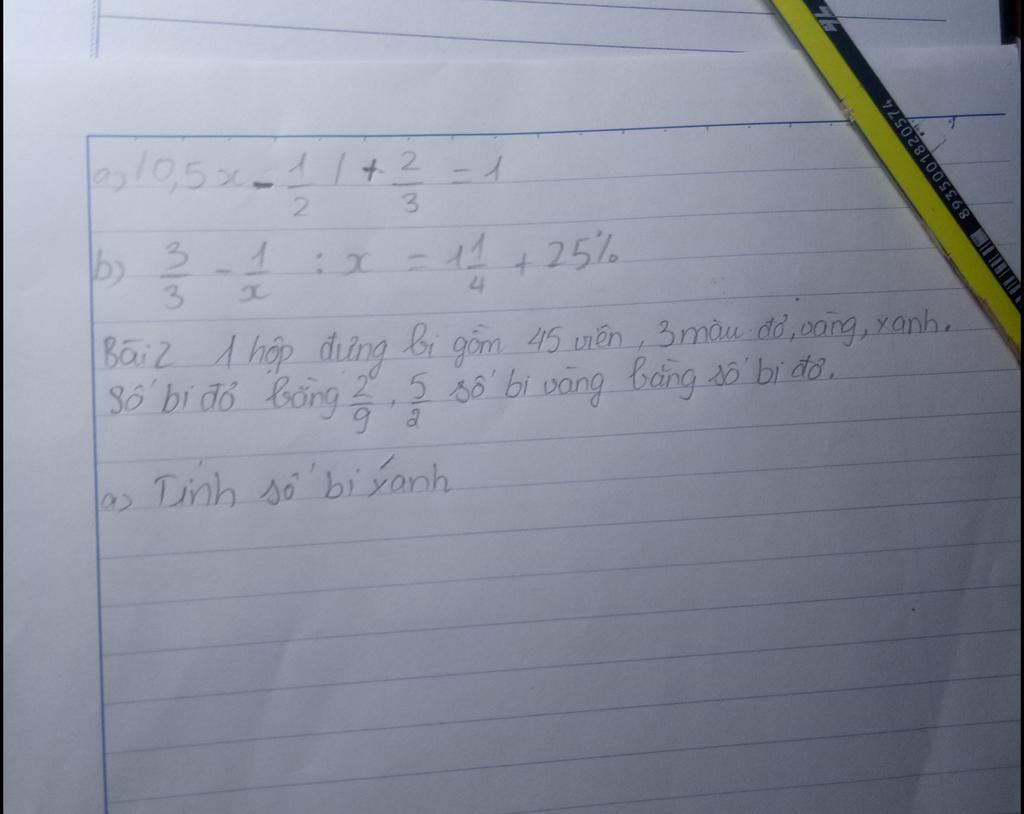 a) |0,5x - 1/2 | + 2/3 = 1
b) 3/3 - 1/x : x = 1 1/4 + 25%
Bài 2 1 hộp đựng bi gồm 45 viên, 3 màu đỏ, vàng, xanh.
Số bi đỏ bằng 2/9, 5/2 số bi vàng bằng số bi đỏ.
a) Tính số bi xanh
8935001820574